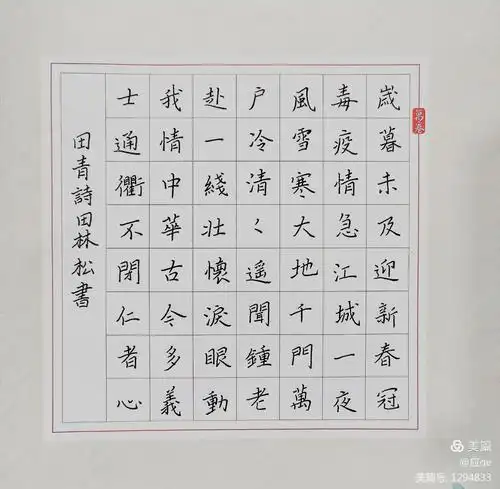 歲暮未及迎新春冠
毒疫情急江城一夜
風雪寒大地千門萬
户冷清〻遥聞鍾老
赴一綫壯懷淚眼動
我情中華古今多義
士通衢不閉仁者心
田青詩田林松書
美篇
@应qe
美篇号: 1294833